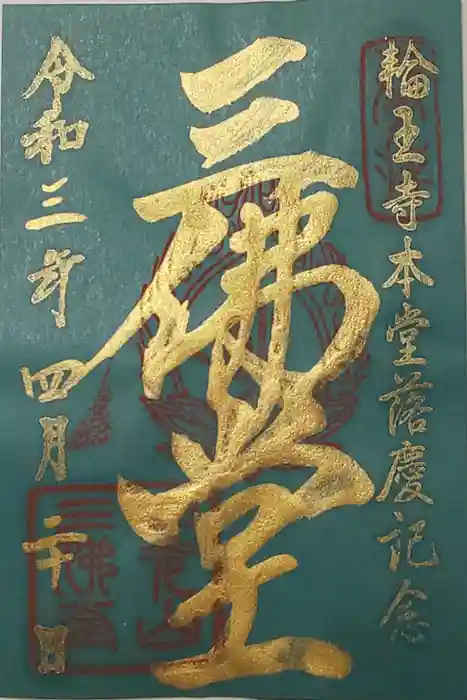 輪王寺本堂落慶記念
三佛堂
令和三年四月二十日
日光山
三佛堂